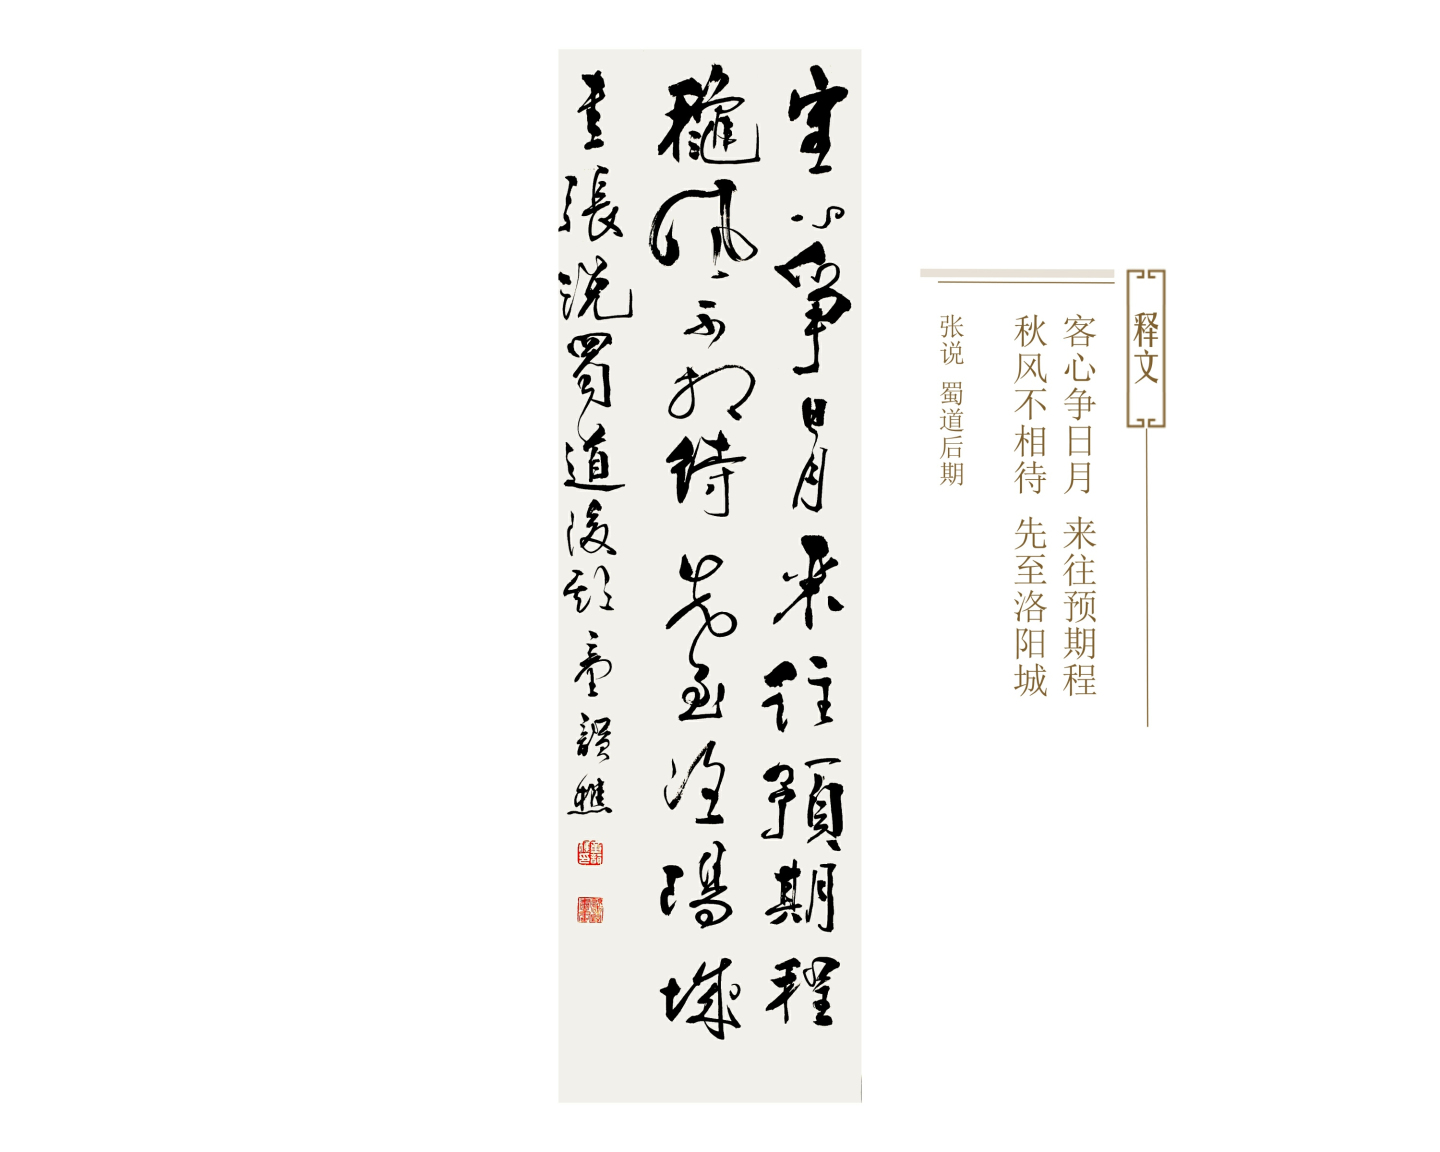 客心爭日月来往預期程
龝風不相待先至洛陽城
書張説蜀道後期童韻樵
释文
客心争日月 来往预期程
秋风不相待 先至洛阳城
张说 蜀道后期